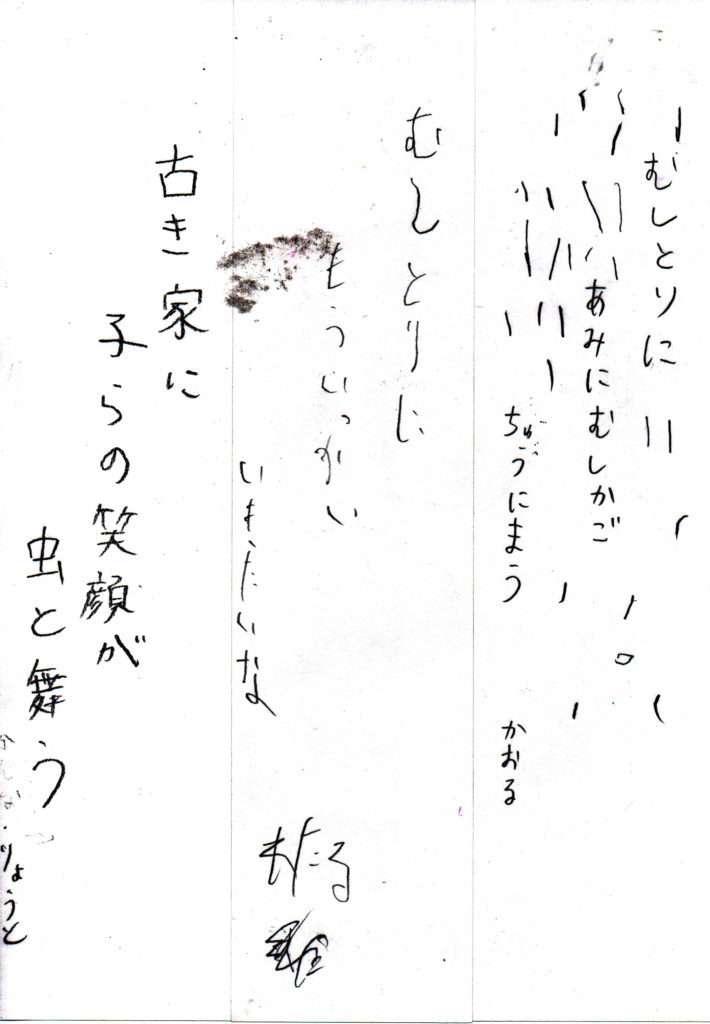 むしとりに
あみにむしかご
ちゅうにまう
かおる
むしとりに
もういっかい
いきたいな
古き家に
子らの笑顔が
虫と舞う
りょうと